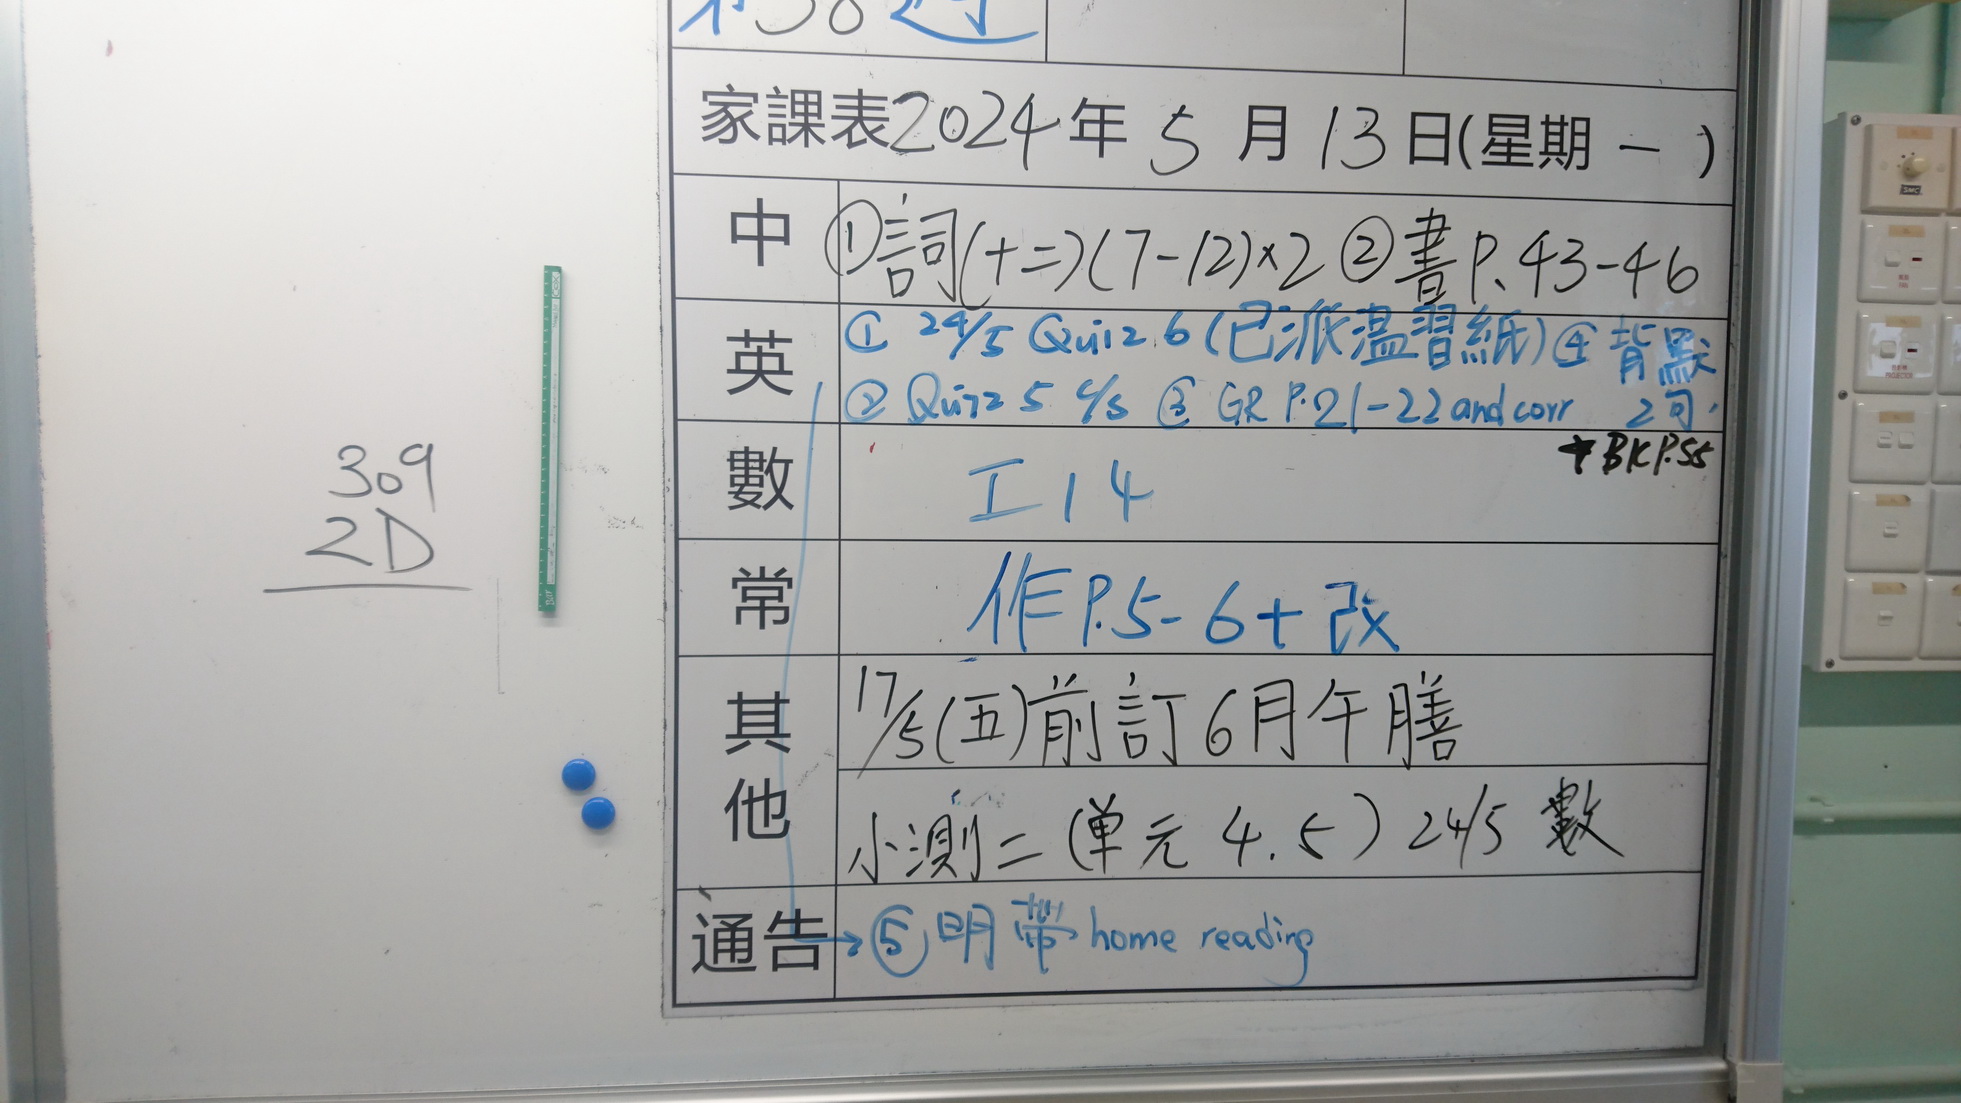 38週
家課表2024年5月13日(星期一)
中 ①詞(十二)(7-12)×2 ②書P.43-46
英 ① 24/5 Quiz 6 (已派溫習紙) ④ 背默
② Quiz 5 c/s ③ GR P.21-22 and corr 2句.
+BK P.55
數 工14
常 作P.5-6+改
其他 17/5(五)前訂6月午膳
小測二(单元 4.5) 24/5 數
通告 → ⑤明帶 home reading
309
2D